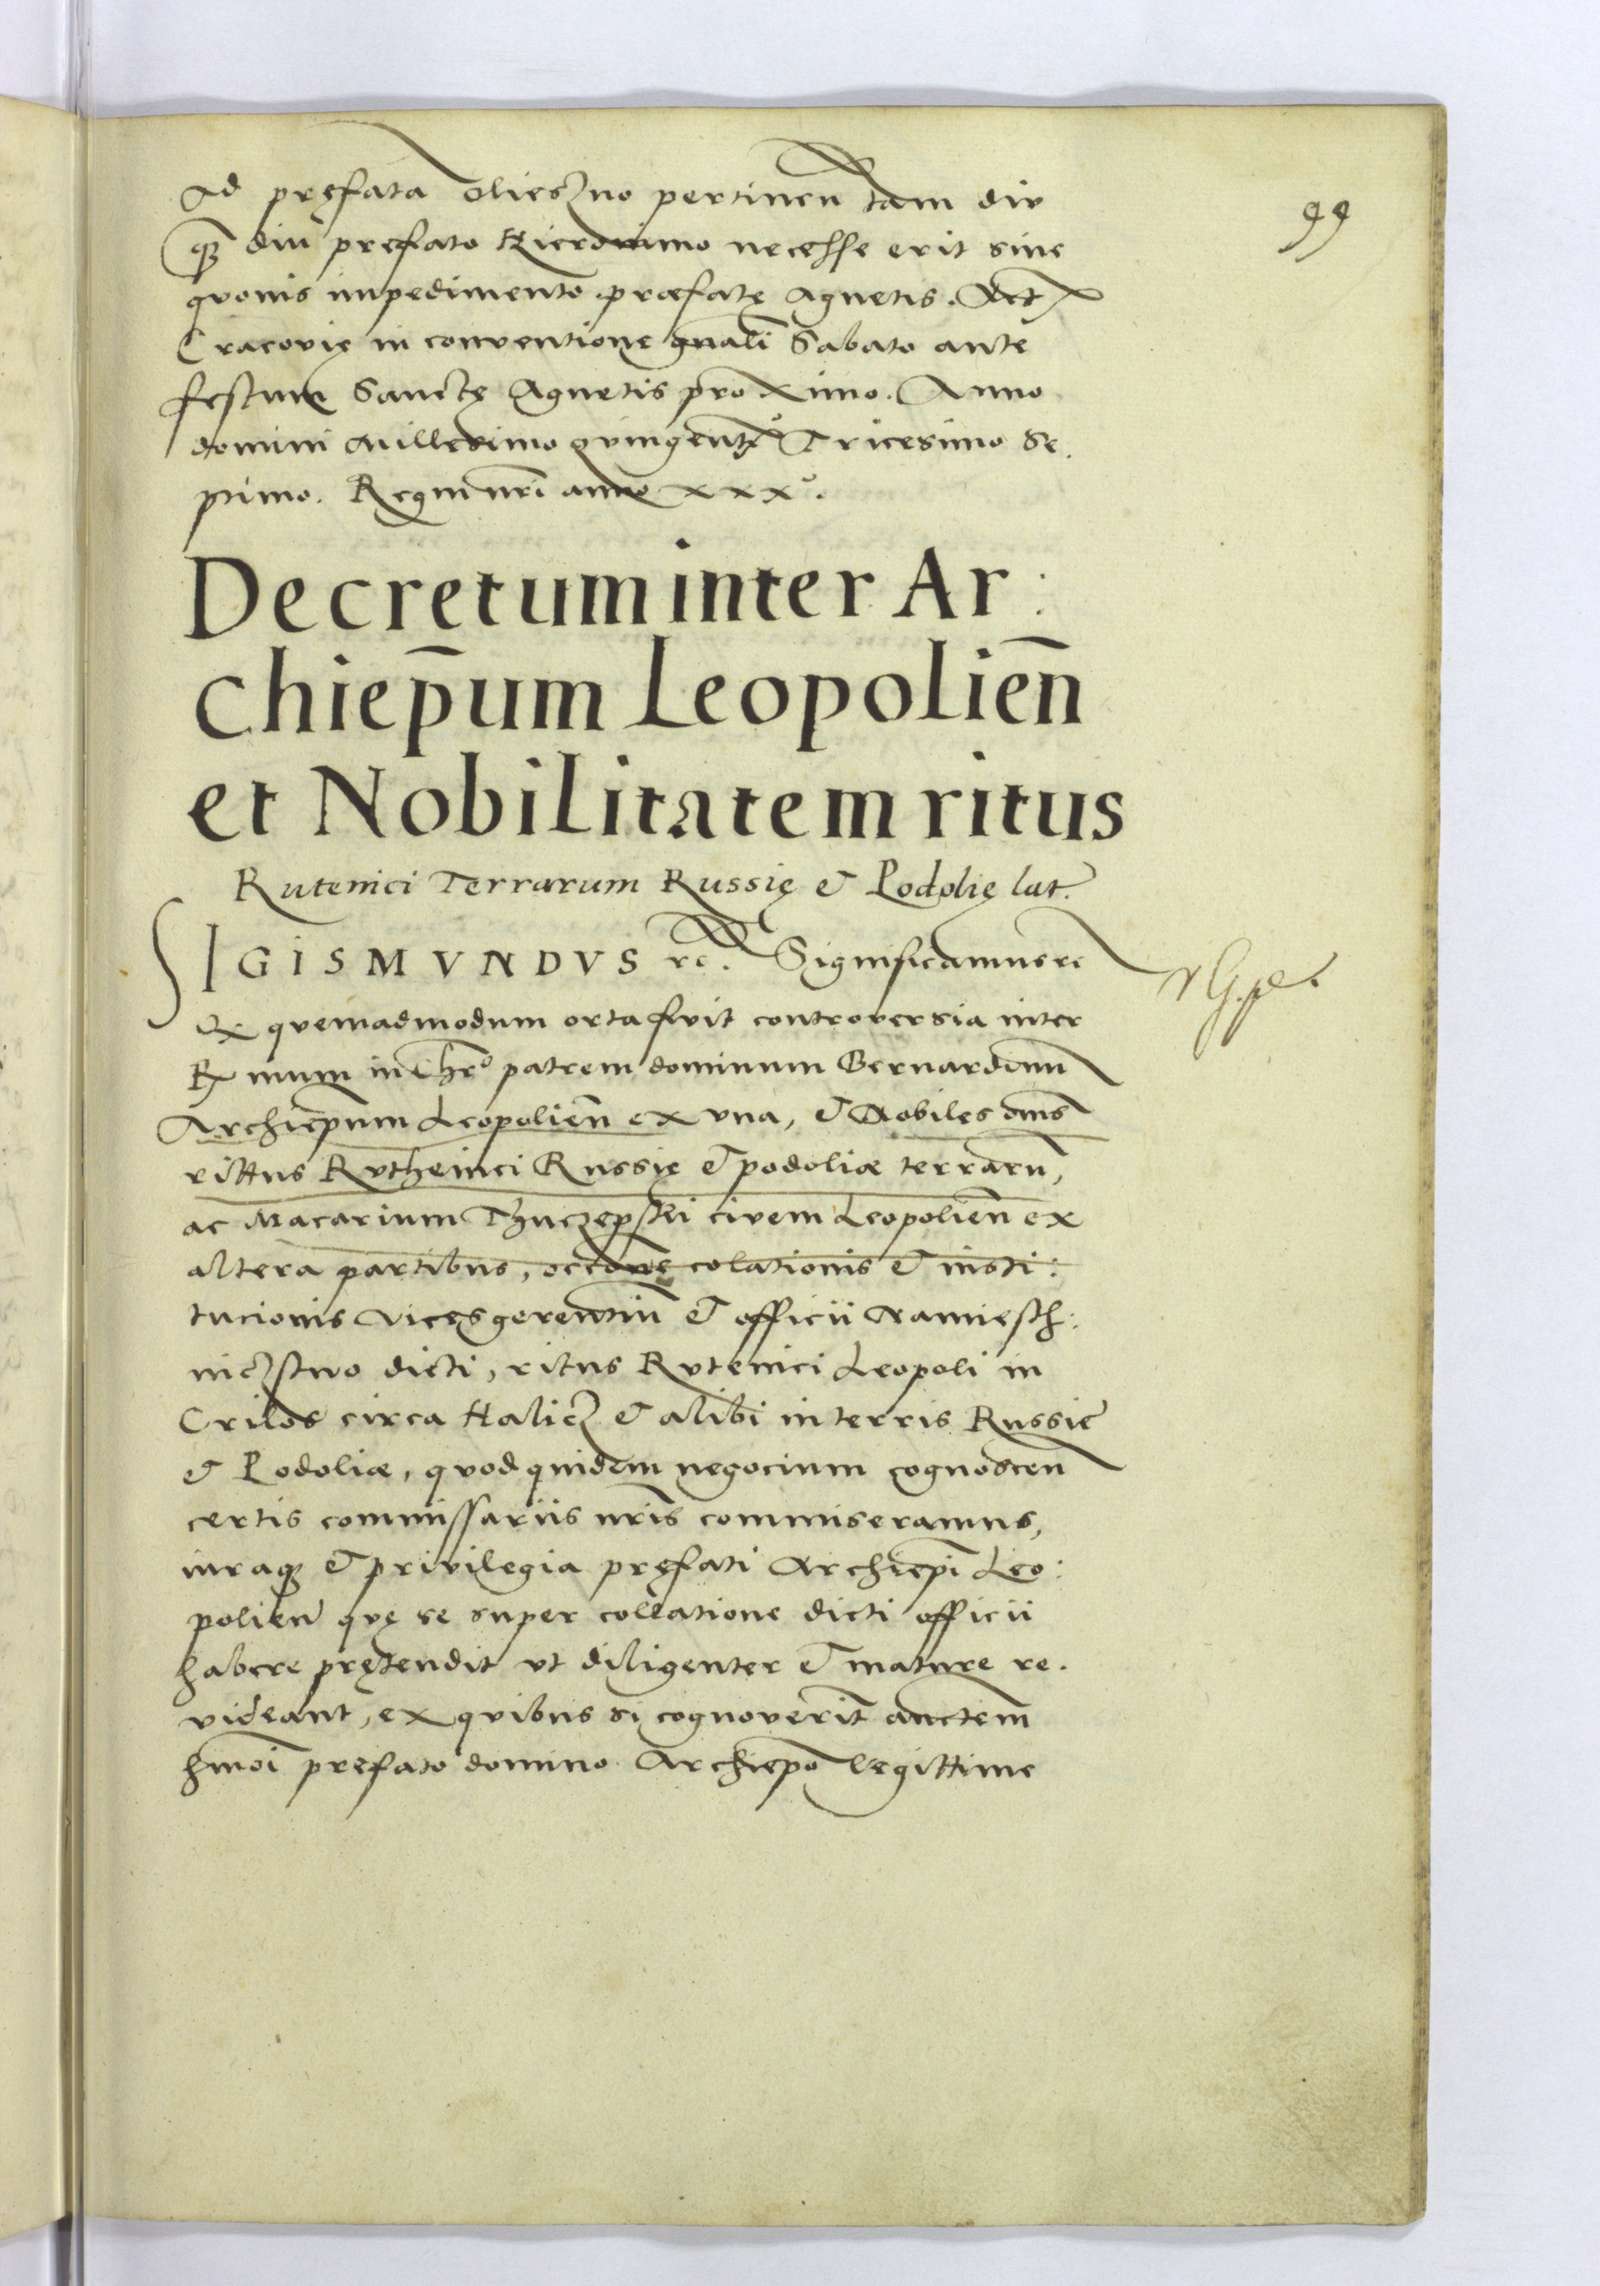 99
ad pręfata Olieszno pertinen̄ tam diu
q̃ diu prefato Hieronimo necesse erit sine
quouis impedimento præfatę Agnetis. Act
Cracovię in conventione gnali Sabato ante
festum Sanctę Agnetis proximo. Anno
domini Millesimo quingentᵒ Tricesimo Se.
ptimo. Regni nri anno xxxᵒ.
Decretum inter Ar:
chiep̄um Leopolień
et Nobilitatem ritus
Rutenici Terrarum Russię & Podolię lat.
SIGISMVNDVS rc. Significamus rc
Qz quemadmodum orta fuit controversia inter
R mum in Chrᵒ patrem dominum Bernardinū
Archiep̄um Leopolien̄ ex una, & Nobiles om̄s
rittus Rutheinci Russię & podoliæ terrarū,
ac Macarium Thuczepski civem Leopolien̄ ex
altera partibus, occōne colationis & insti:
tucionis vicesgerentiū & officii Namiesth:
niczstwo dicti, ritus Rutenici Leopoli in
Crilos circa Halicz & alibi in terris Russie
& Podoliæ, quod quidem negocium cognoscen
certis commissariis nr̄is commiseramus,
iuraq̃ & privilegia pręfati Archiep̄i Leo:
polien̄ quę se super collatione dicti officii
habere prętendit ut diligenter & mature re.
videant, ex quibus si cognoverīt auctem̄
hmōi prefato domino Archiep̄o legittime